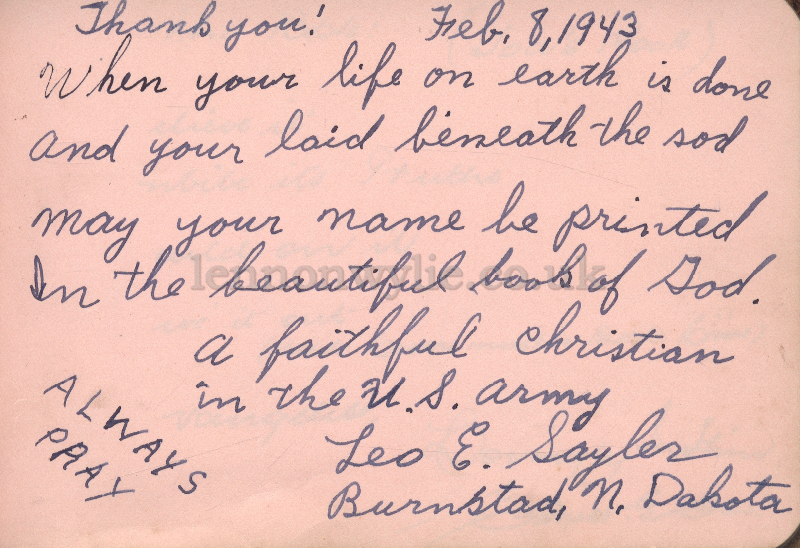 Thank you! Feb. 8, 1943
When your life on earth is done
and your laid beneath the sod
may your name be printed
In the beautiful book of God.
a faithful Christian
in the U.S. army
Leo E. Sayler
Burnstad, N. Dakota
ALWAYS
PRAY
lennonwylie.co.uk